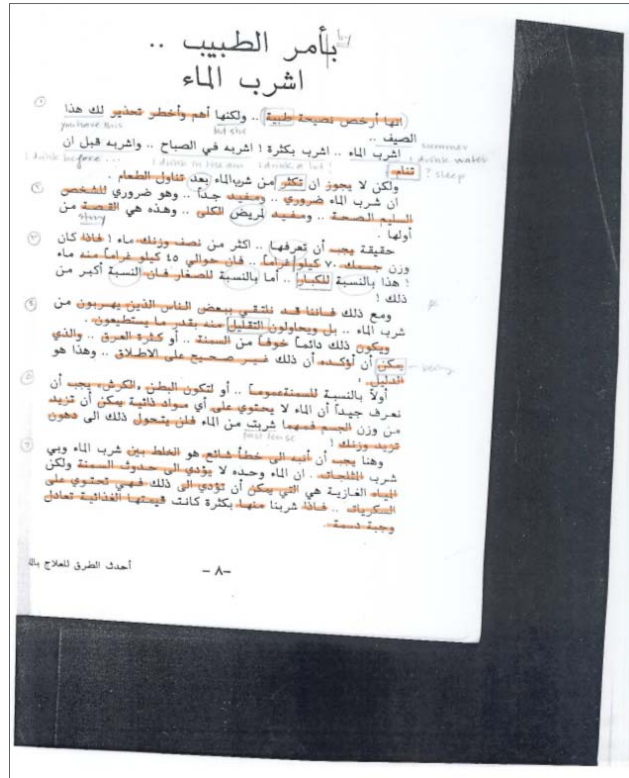 بأمر الطبيب ..
اشرب الماء
انها أرخص نصيحة طبية .. ولكنها أهم وأخطر تحذير لك هذا
you have this but she
الصيف .. summer
اشرب الماء .. اشرب بكثرة ! اشربه في الصباح .. واشربه قبل ان
I drink before ... I drink in the am I drink a lot ! I drink water
تنام ! ? sleep
ولكن لا يجوز ان تكثر من شرب الماء بعد تناول الطعام .
ان شرب الماء ضروري .. ومفيد جداً .. وهو ضروري للشخص
السليم الصحة .. ومفيد لمريض الكلى .. وهذه هي القصة من
أولها . story
حقيقة يجب أن تعرفها .. اكثر من نصف وزنك ماء ! فاذا كان
وزن جسمك ٧٠ كيلو غراماً .. فان حوالي ٤٥ كيلو غراماً منه ماء
! هذا بالنسبة للكبار .. أما بالنسبة للصغار فان النسبة أكبر من
ذلك !
ومع ذلك فاننا قد نلتقي ببعض الناس الذين يهربون من
شرب الماء .. بل ويحاولون التقليل منه بقدر ما يستطيعون .
ويكون ذلك دائماً خوفاً من السمنة .. أو كثرة العرق .. والذي
يمكن أن أؤكده أن ذلك غير صحيح على الاطلاق .. وهذا هو
الدليل :
أولاً بالنسبة للسمنة عموماً .. أو لتكون البطن والكرش يجب أن
نعرف جيداً أن الماء لا يحتوي على أي مواد ذاتية يمكن أن تزيد
من وزن الجسم فمهما شربت من الماء فلن يتحول ذلك الى دهون
تزيد وزنك ! past tense
وهنا يجب أن أنبه الى خطأ شائع هو الخلط بين شرب الماء وبي
شرب المثلجات . ان الماء وحده لا يؤدي الى حدوث السمنة ولكن
المياه الغازية هي التي يمكن أن تؤدي الى ذلك فهي تحتوي على
السكريات .. فاذا شربنا منها بكثرة كانت قيمتها الغذائية تعادل
وجبة دسمة .
-٨-
أحدث الطرق للعلاج بالا